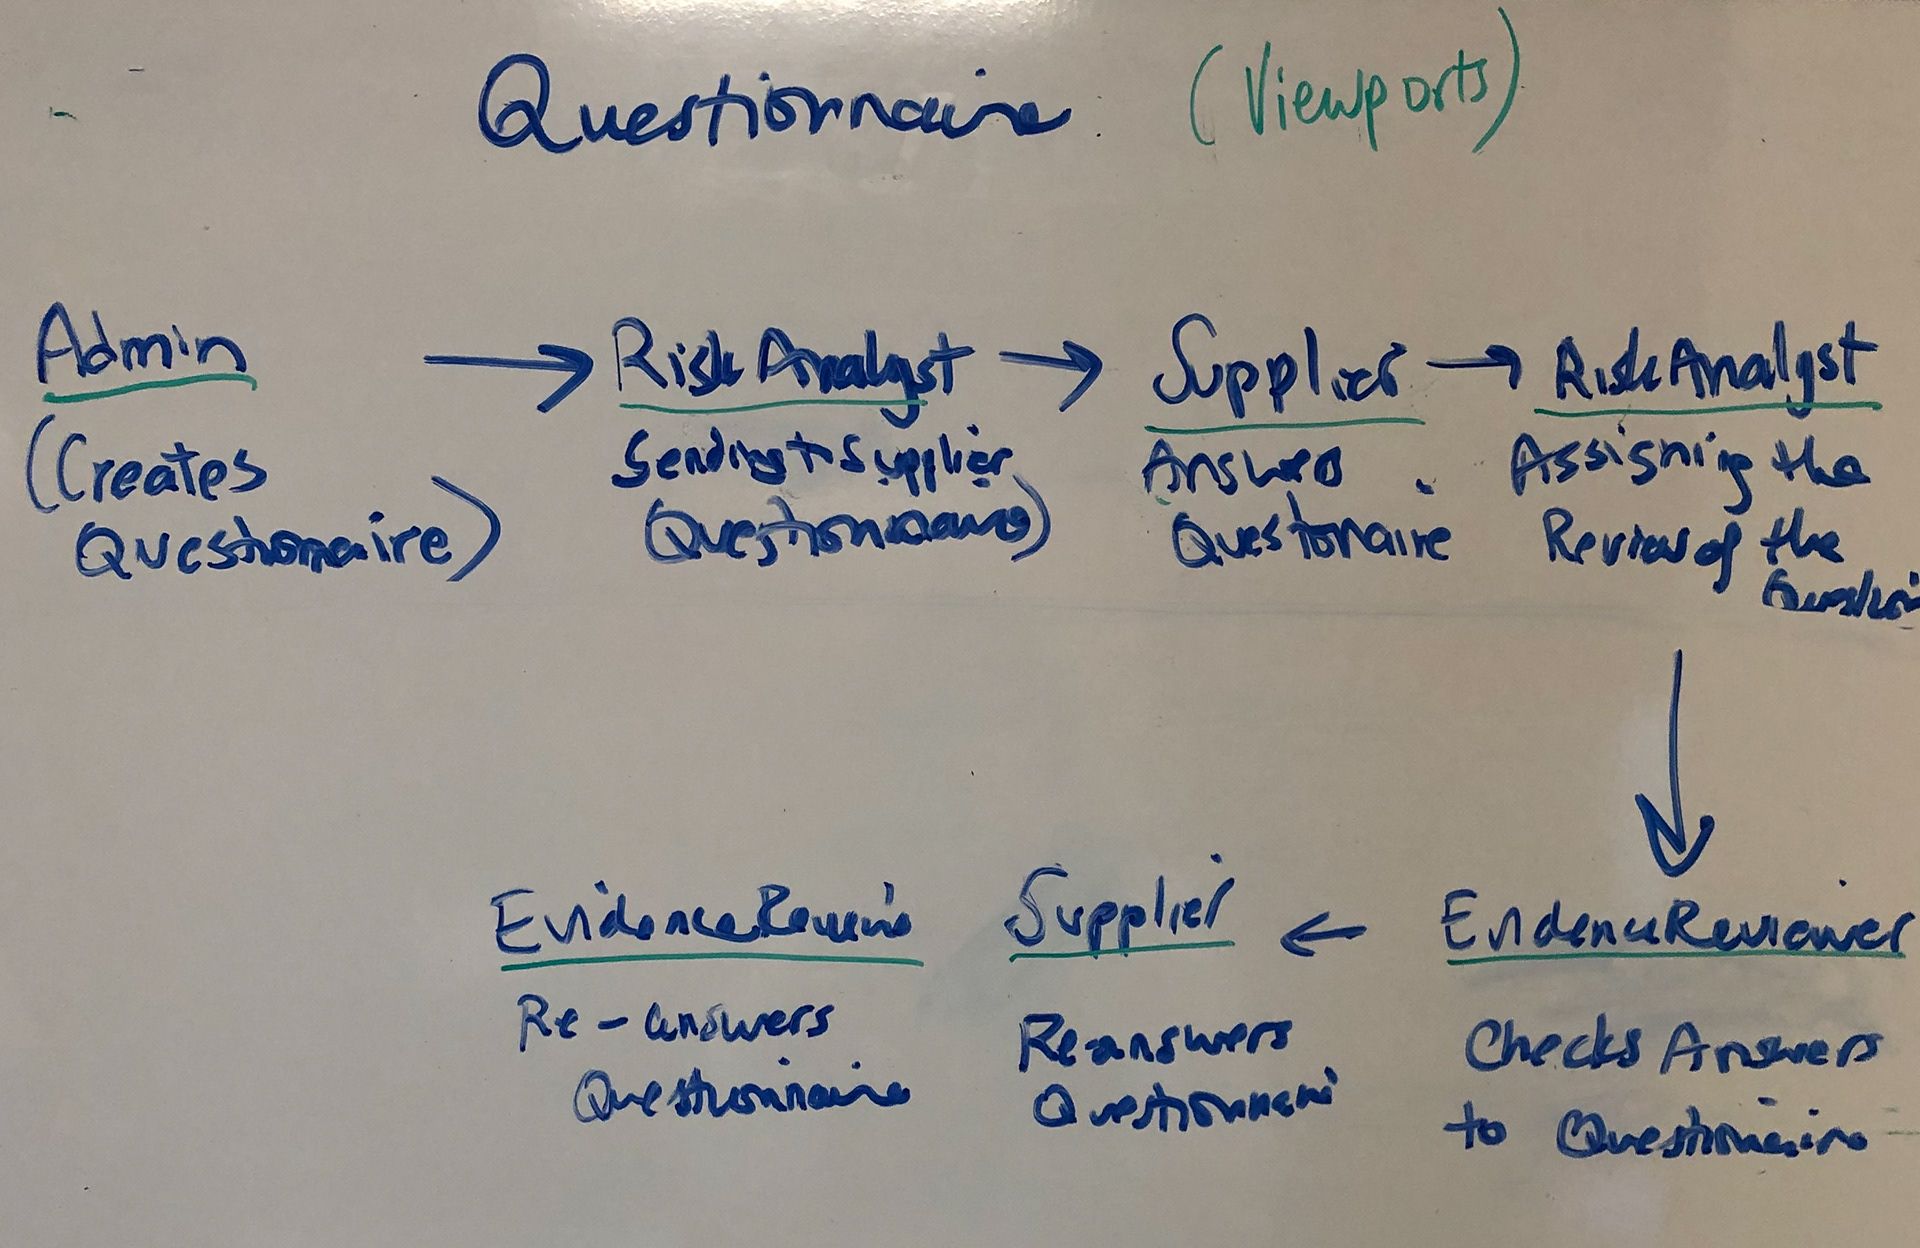 Questionnaire (Viewports)
Admin → Risk Analyst → Supplier → Risk Analyst
(Creates
Questionnaire)
Sending to Supplier
(Questionnaire)
Answers
Questionaire
Assigning the
Review of the
EvidenceReviewer
Checks Answers
to Questionnaire
←
Supplier
Re-answers
Questionnaire
Evidence
Re-answers
Questionnaire